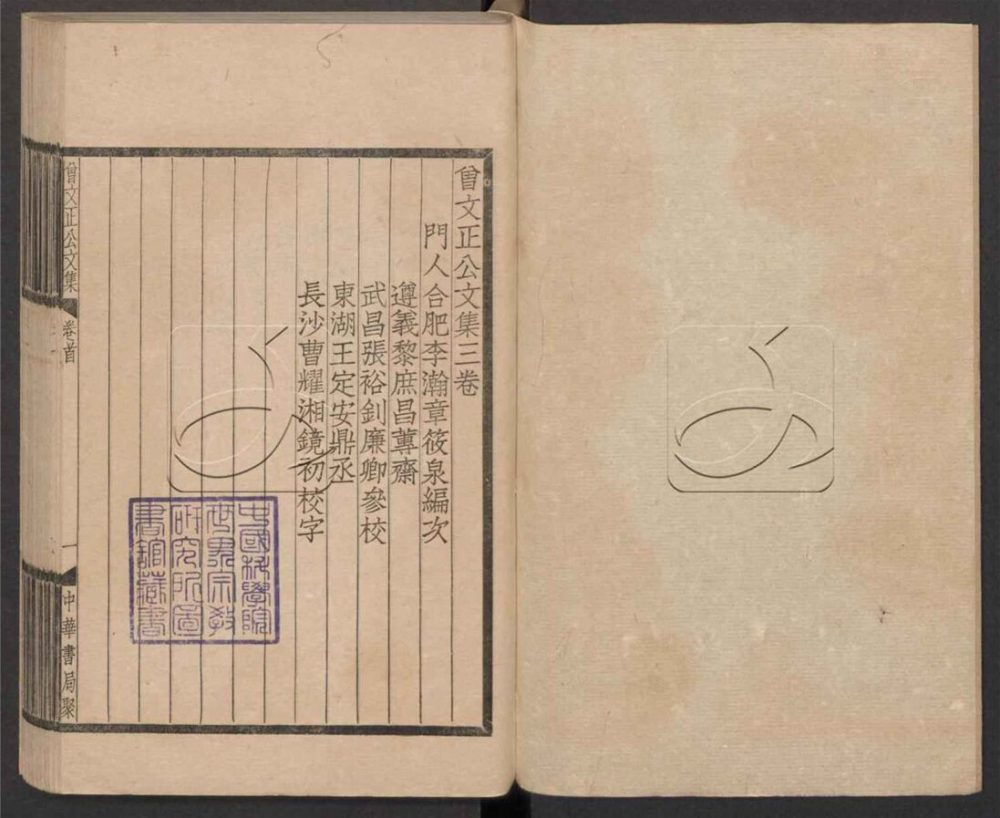 曾文正公文集三卷
門人合肥李瀚章筱泉編次
遵義黎庶昌蓴齋
武昌張裕釗廉卿參校
東湖王定安鼎丞
長沙曹耀湘鏡初校字
中國科學院
世界宗教
研究所圖
書館藏書
曾文正公文集
卷首
一
中華書局聚